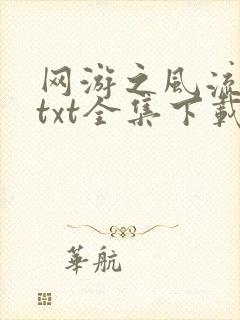 网游之风流
txt全集下載
華航